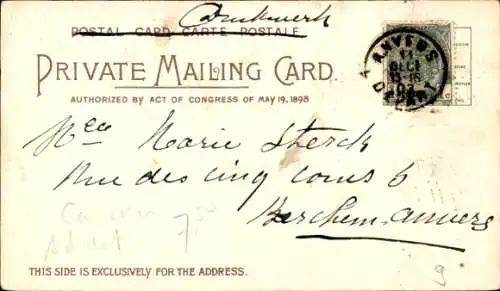 Drukwerk
POSTAL CARD CARTE POSTALE
PRIVATE MAILING CARD.
AUTHORIZED BY ACT OF CONGRESS OF MAY 19, 1898
ANVERS
DEPART
Marie Sterck
Rue des cinq cours 6
Berchem-Anvers
7.50
THIS SIDE IS EXCLUSIVELY FOR THE ADDRESS.
9